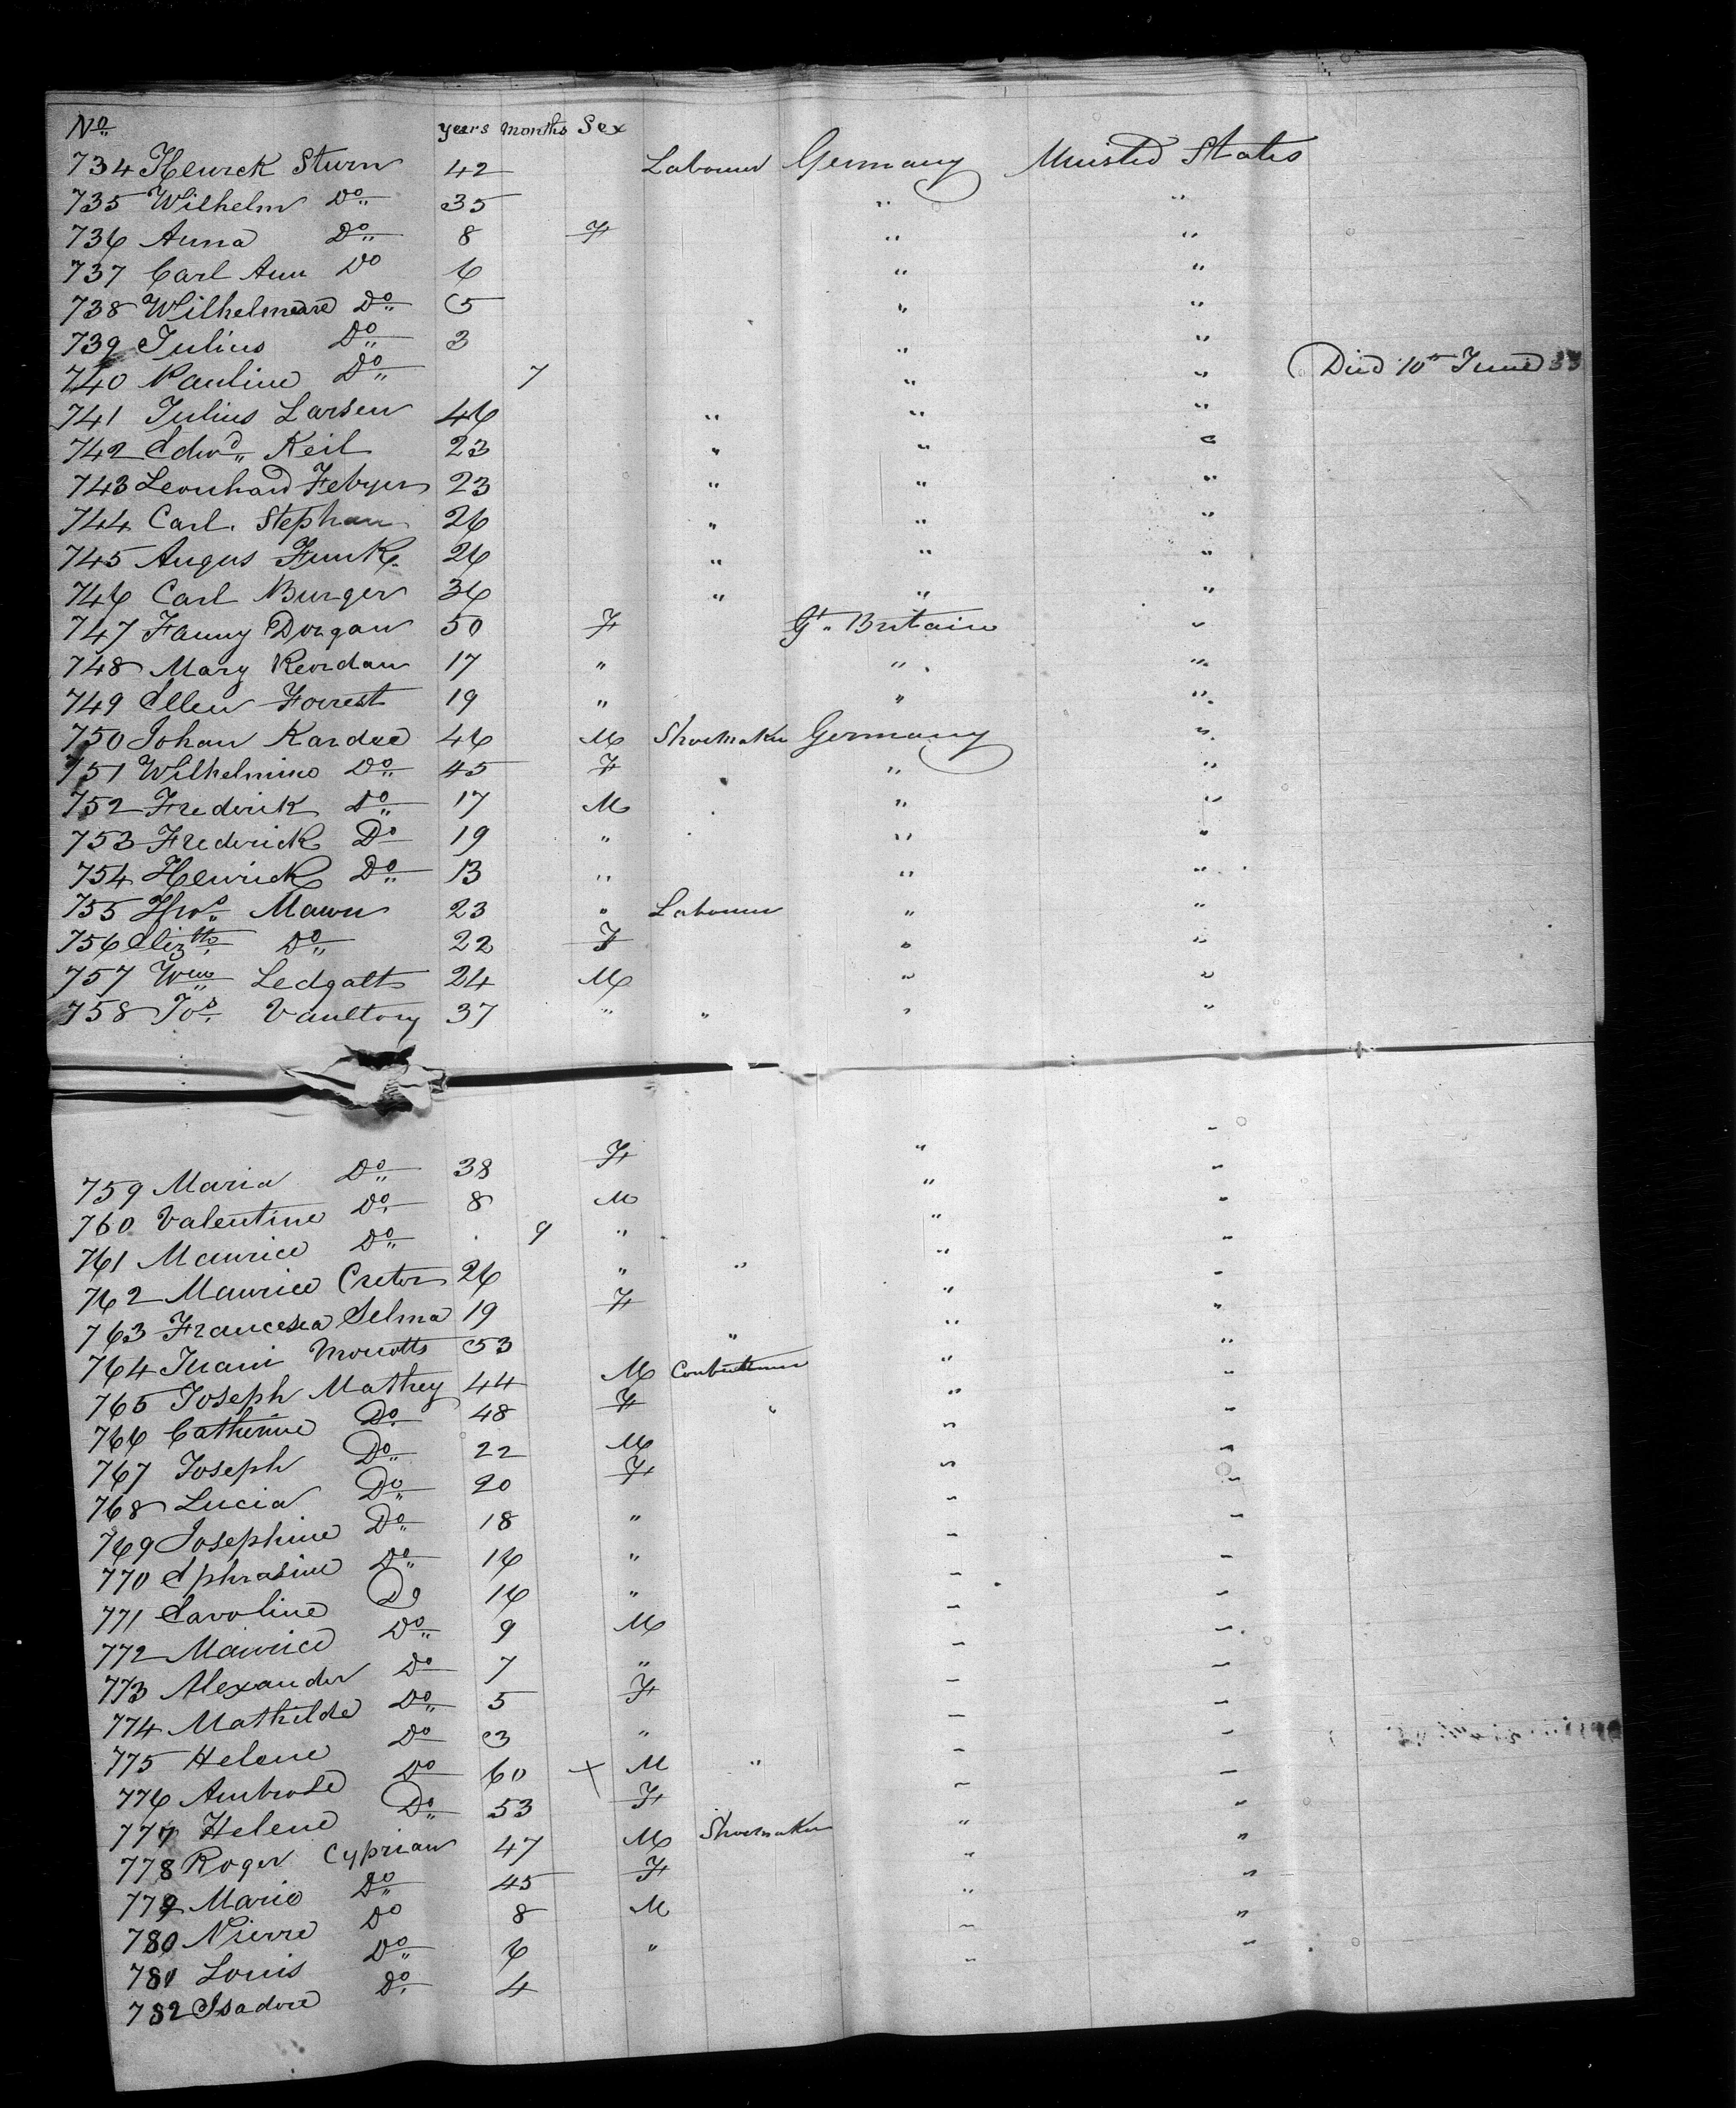 No years months Sex
734 Henrick Sturn 42 Labourer Germany United States
735 Wilhelm Do 35 " "
736 Anna Do 8 F " "
737 Carl Ann Do 6 " "
738 Do 5 " "
739 Julius Do 3 " "
740 Pauline Do 7 " " Died 10th June
741 Julius Larsen 46 " " "
742 Edwd Keil 23 " " "
743 Leonhard 23 " " "
744 Carl. Stephan 26 " " "
745 Angus Funk 26 " " "
746 Carl Burger 36 " " "
747 Fanny Dorgan 50 F Gt Britain "
748 Mary Reordan 17 " " "
749 Ellen Forrest 19 " " "
750 Johan Kardee 46 M Shoemaker Germany "
751 Wilhelmine Do 45 F " "
752 Frederick Do 17 M " "
753 Frederick Do 19 " " "
754 Henrick Do 13 " " "
755 Thos Mawn 23 " Labourer " "
756 Elizth Do 22 F " "
757 Wm Ledgatt 24 M " "
758 Jos Vaultory 37 " " " "
759 Maria Do 38 F " "
760 Valentine Do 8 M " "
761 Maurice Do 9 " " "
762 Maurice Cretor 26 " " " "
763 Francesca Selma 19 F " "
764 53 " " "
765 Joseph Mathey 44 M " "
766 Catherine Do 48 F " " "
767 Joseph Do 22 M " "
768 Lucia Do 20 F " "
769 Josephine Do 18 " " "
770 Ephrasine Do 16 " " "
771 Caroline Do 16 " " "
772 Maurice Do 9 M " "
773 Alexander Do 7 " " "
774 Mathilde Do 5 F " "
775 Helene Do 3 " " "
776 Ambrose Do 60 x M " " "
777 Helene Do 53 F " "
778 Roger Cyprian 47 M Shoemaker " "
779 Marie Do 45 F " "
780 Pierre Do 8 M " "
781 Louis Do 6 " " "
782 Isadore Do 4 " "